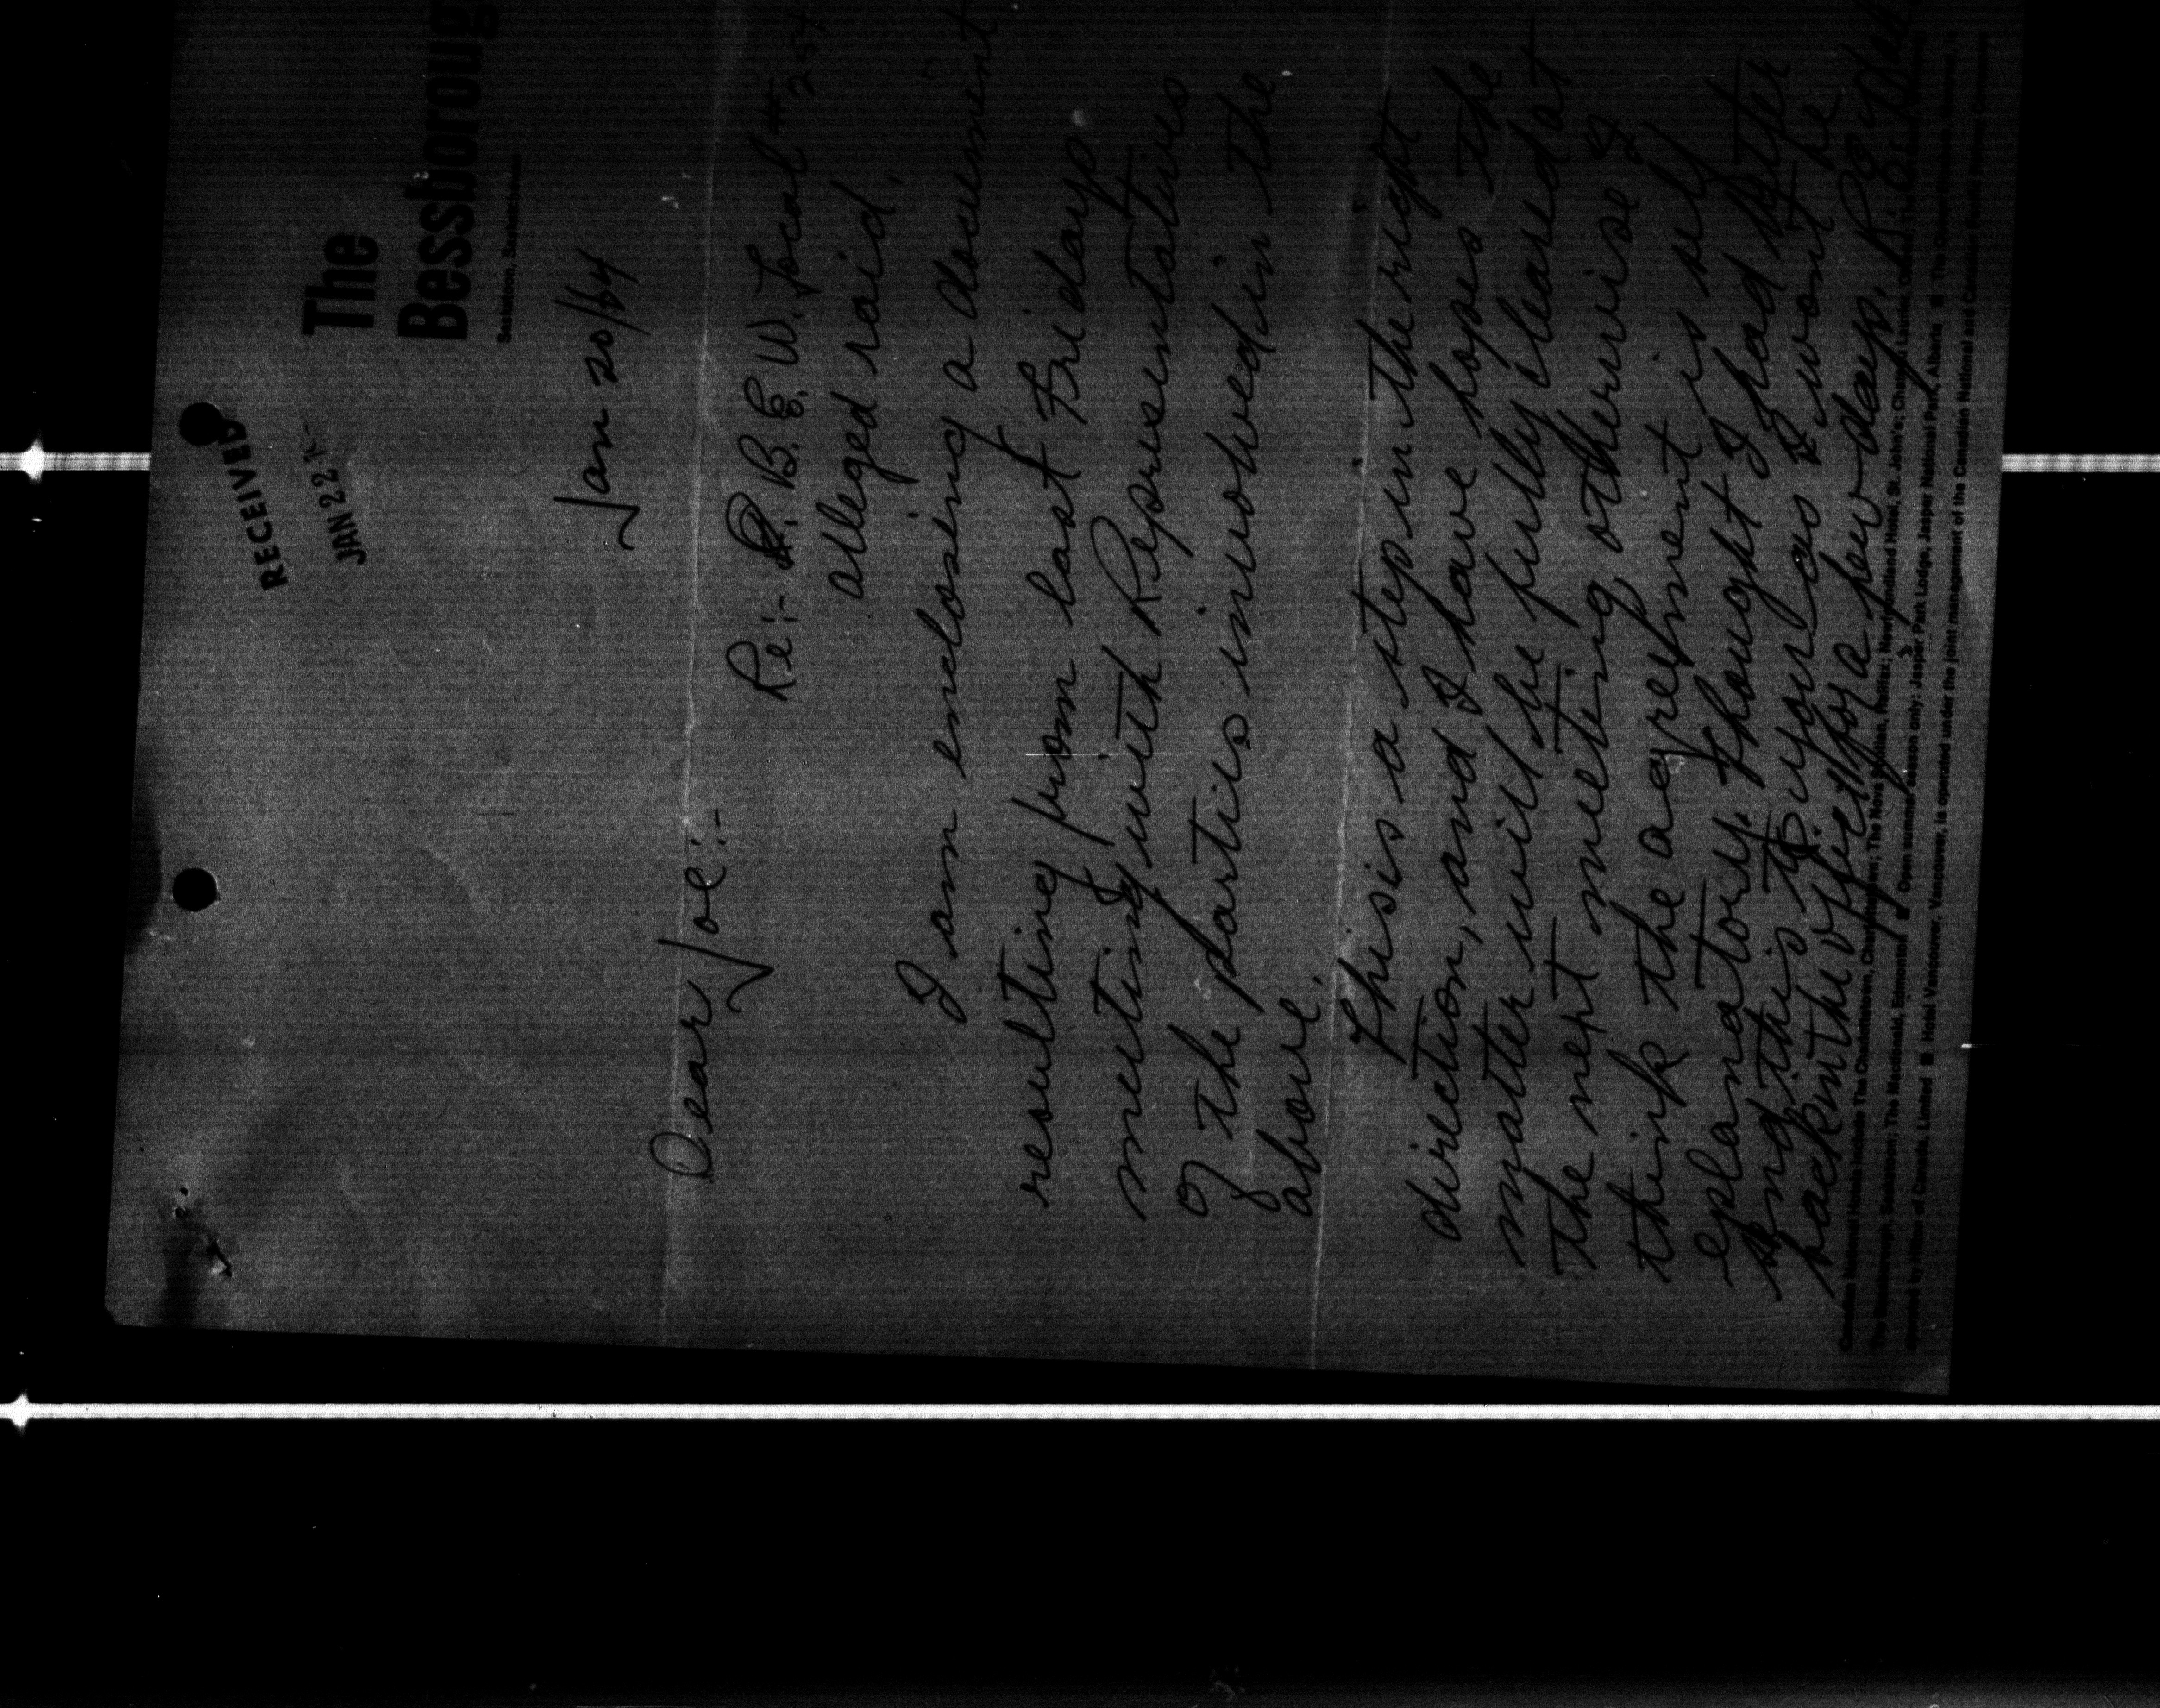 RECEIVED
JAN 22
The
Bessboroug
Saskatoon, Saskatchewan
Jan 20/64
Dear Joe:-
Re:- I. B. E. W. Local # 254
alleged raid.
I am enclosing a document
resulting from last Fridays
meeting with Representatives
of the parties involved in the
above.
This is a step in the right
direction, and I have hopes the
matter will be fully cleared at
the next meeting otherwise I
think the agreement is self
explanatory. Thought I had better
send this to you as I wont be
back in the office for a few days.
Canadian National Hotels include: The Charlottetown, Charlottetown; The Nova Scotian, Halifax; Newfoundland Hotel, St. John's; Château Laurier, Ottawa;
The Bessborough, Saskatoon; The Macdonald, Edmonton ■ Open summer season only: Jasper Park Lodge, Jasper National Park, Alberta ■ The Queen Elizabeth, Montreal, is
operated by Hilton of Canada, Limited ■ Hotel Vancouver, Vancouver, is operated under the joint management of the Canadian National and Canadian Pacific Railway Companies